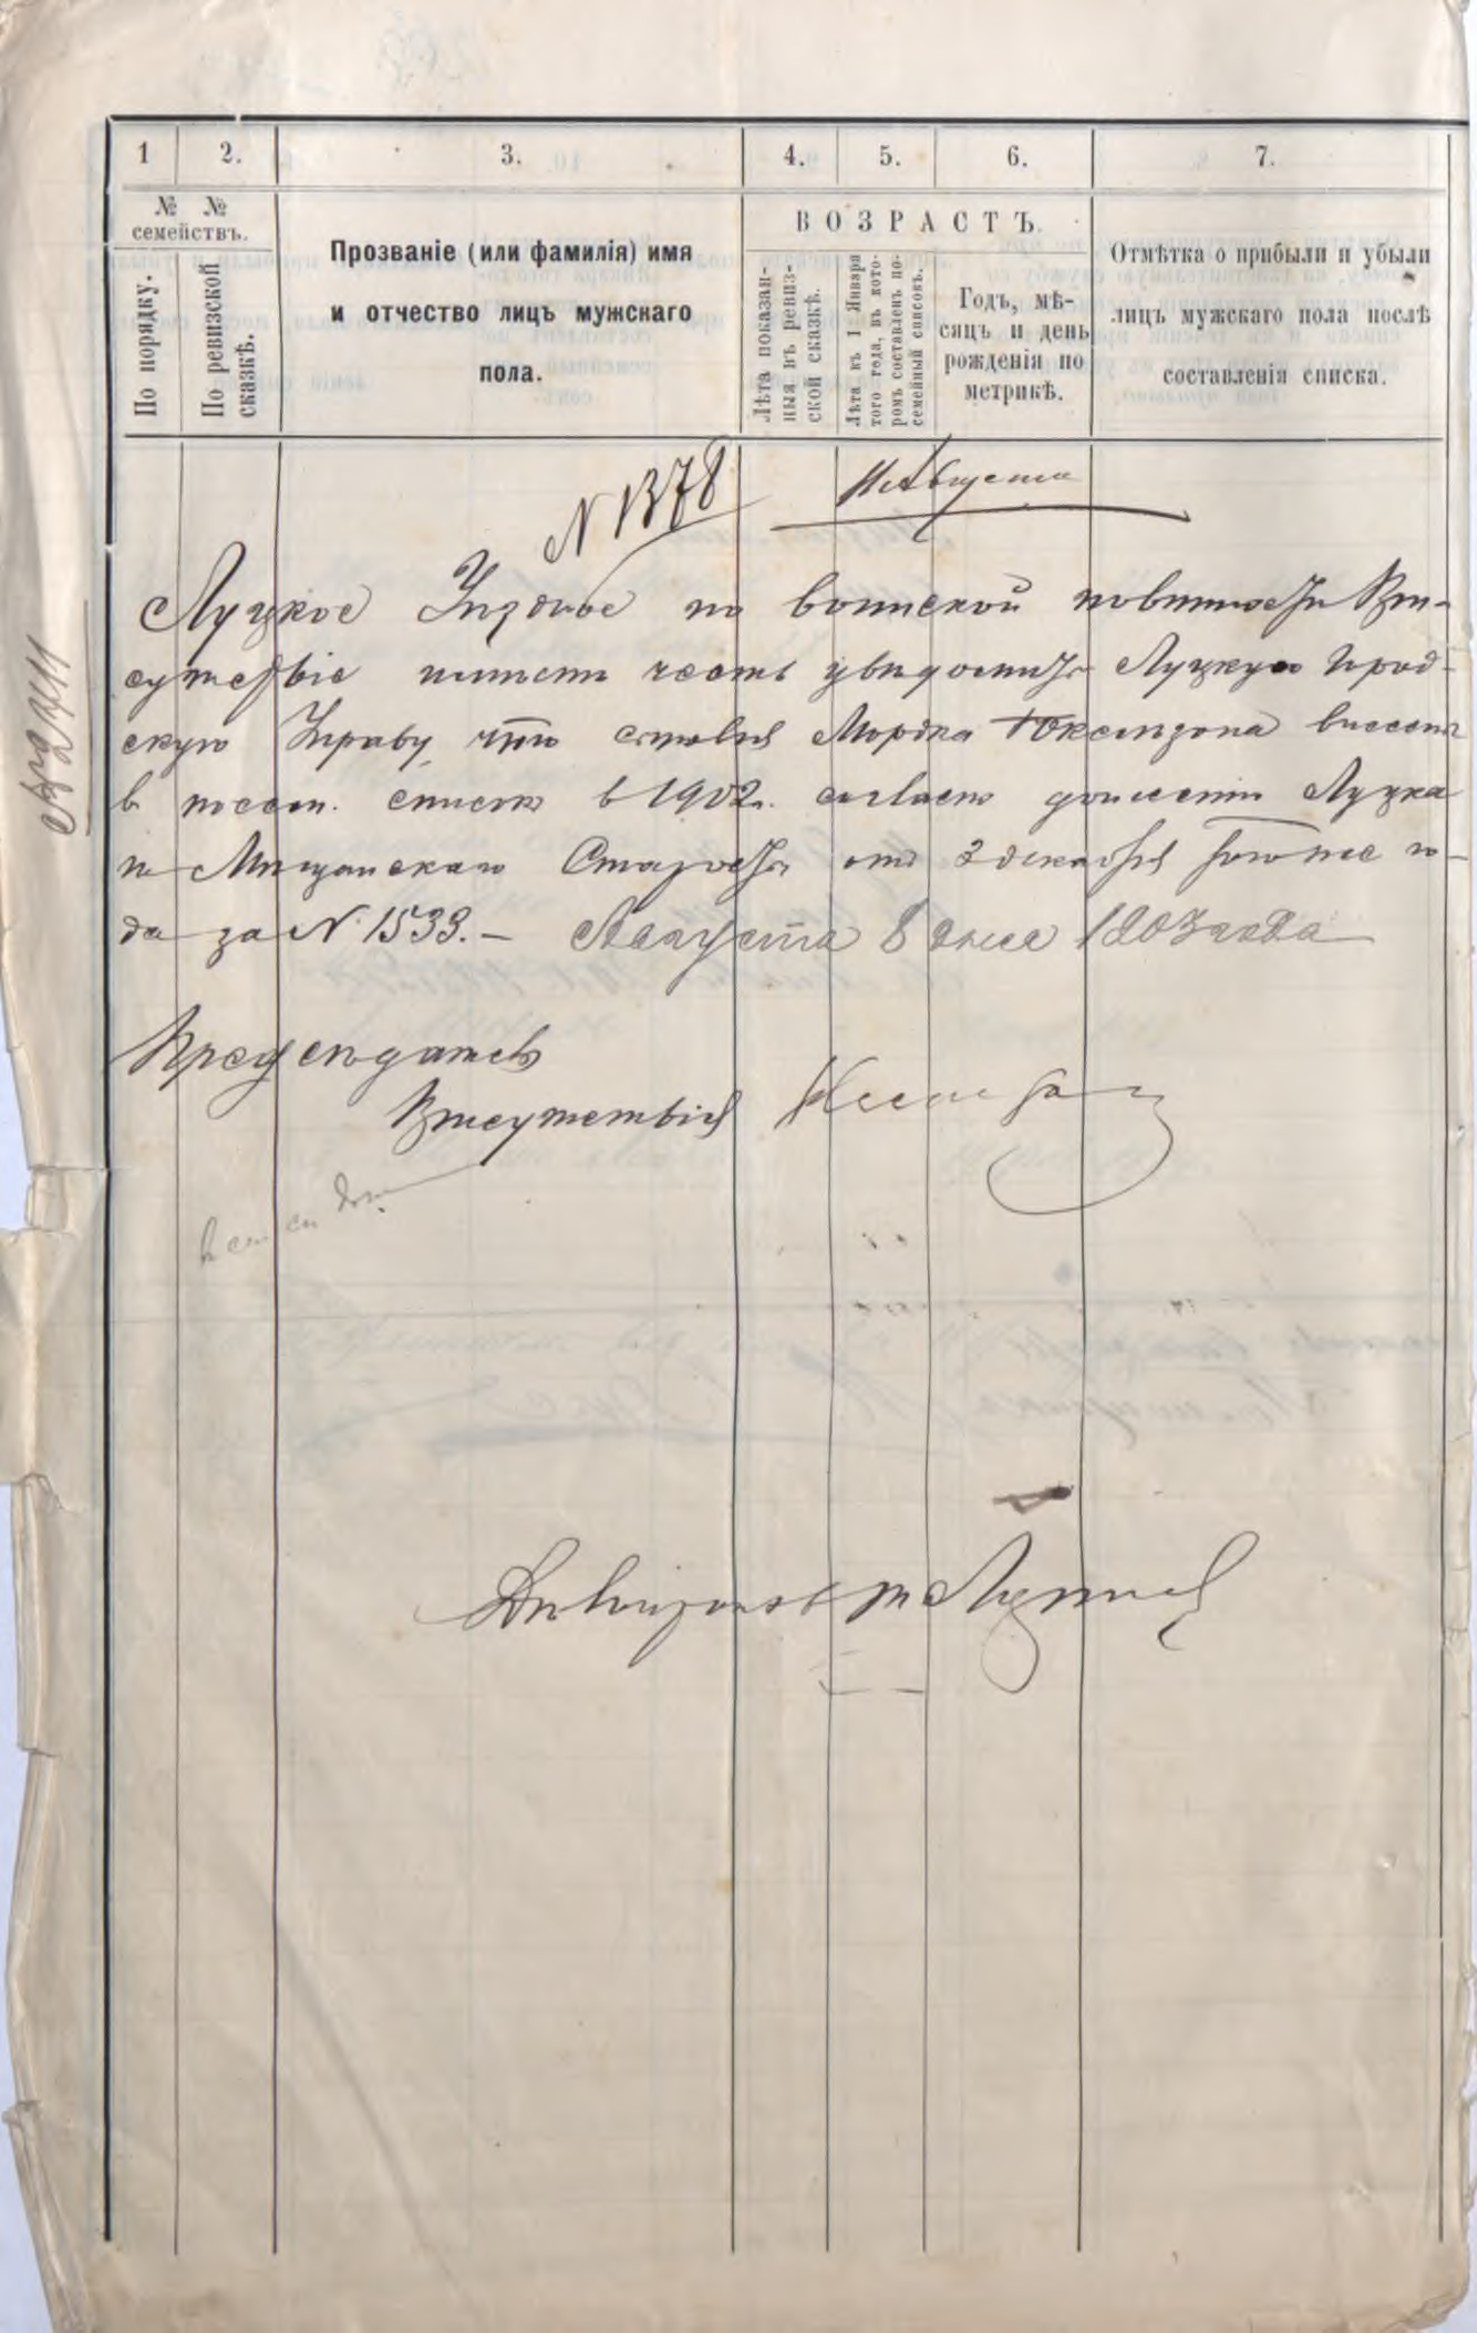 1 2. 3. 4. 5. 6. 7.
№ № семействъ.
По порядку.
По ревизской сказкѣ.
Прозваніе (или фамилія) имя
и отчество лицъ мужскаго
пола.
ВОЗРАСТЪ.
Лѣта показан-
ныя въ ревиз-
ской сказкѣ.
Лѣта къ 1 Января
того года, въ кото-
ромъ составленъ по-
семейный списокъ.
Годъ, мѣ-
сяцъ и день
рожденія по
метрикѣ.
Отмѣтка о прибыли и убыли
лицъ мужскаго пола послѣ
составленія списка.
N 1378 Августа
Луцкое Уѣздное по воинской повинности При-
сутствіе имѣетъ честь увѣдомить Луцкую Город-
скую Управу, что Мордка внесенъ
в посем. списокъ в 1902 г. согласно донесенію Луцка
го Мѣщанскаго Старосты отъ 3 декабря того же го-
да за N 1533. — Августа 8 дня 1903 года
Предсѣдатель
Присутствія